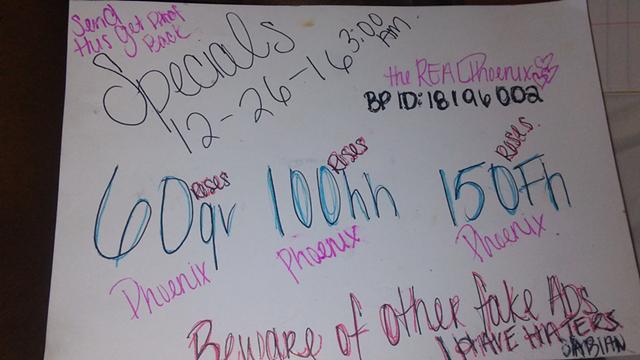 Send
this get Proof
Back
Specials
12-26-16 3:00 AM
the REAL Phoenix
BP ID: 18196002
60qv Roses 100hh Roses 150Fh Roses
Phoenix Phoenix Phoenix
Beware of other fake Ads
I HAVE HATERS